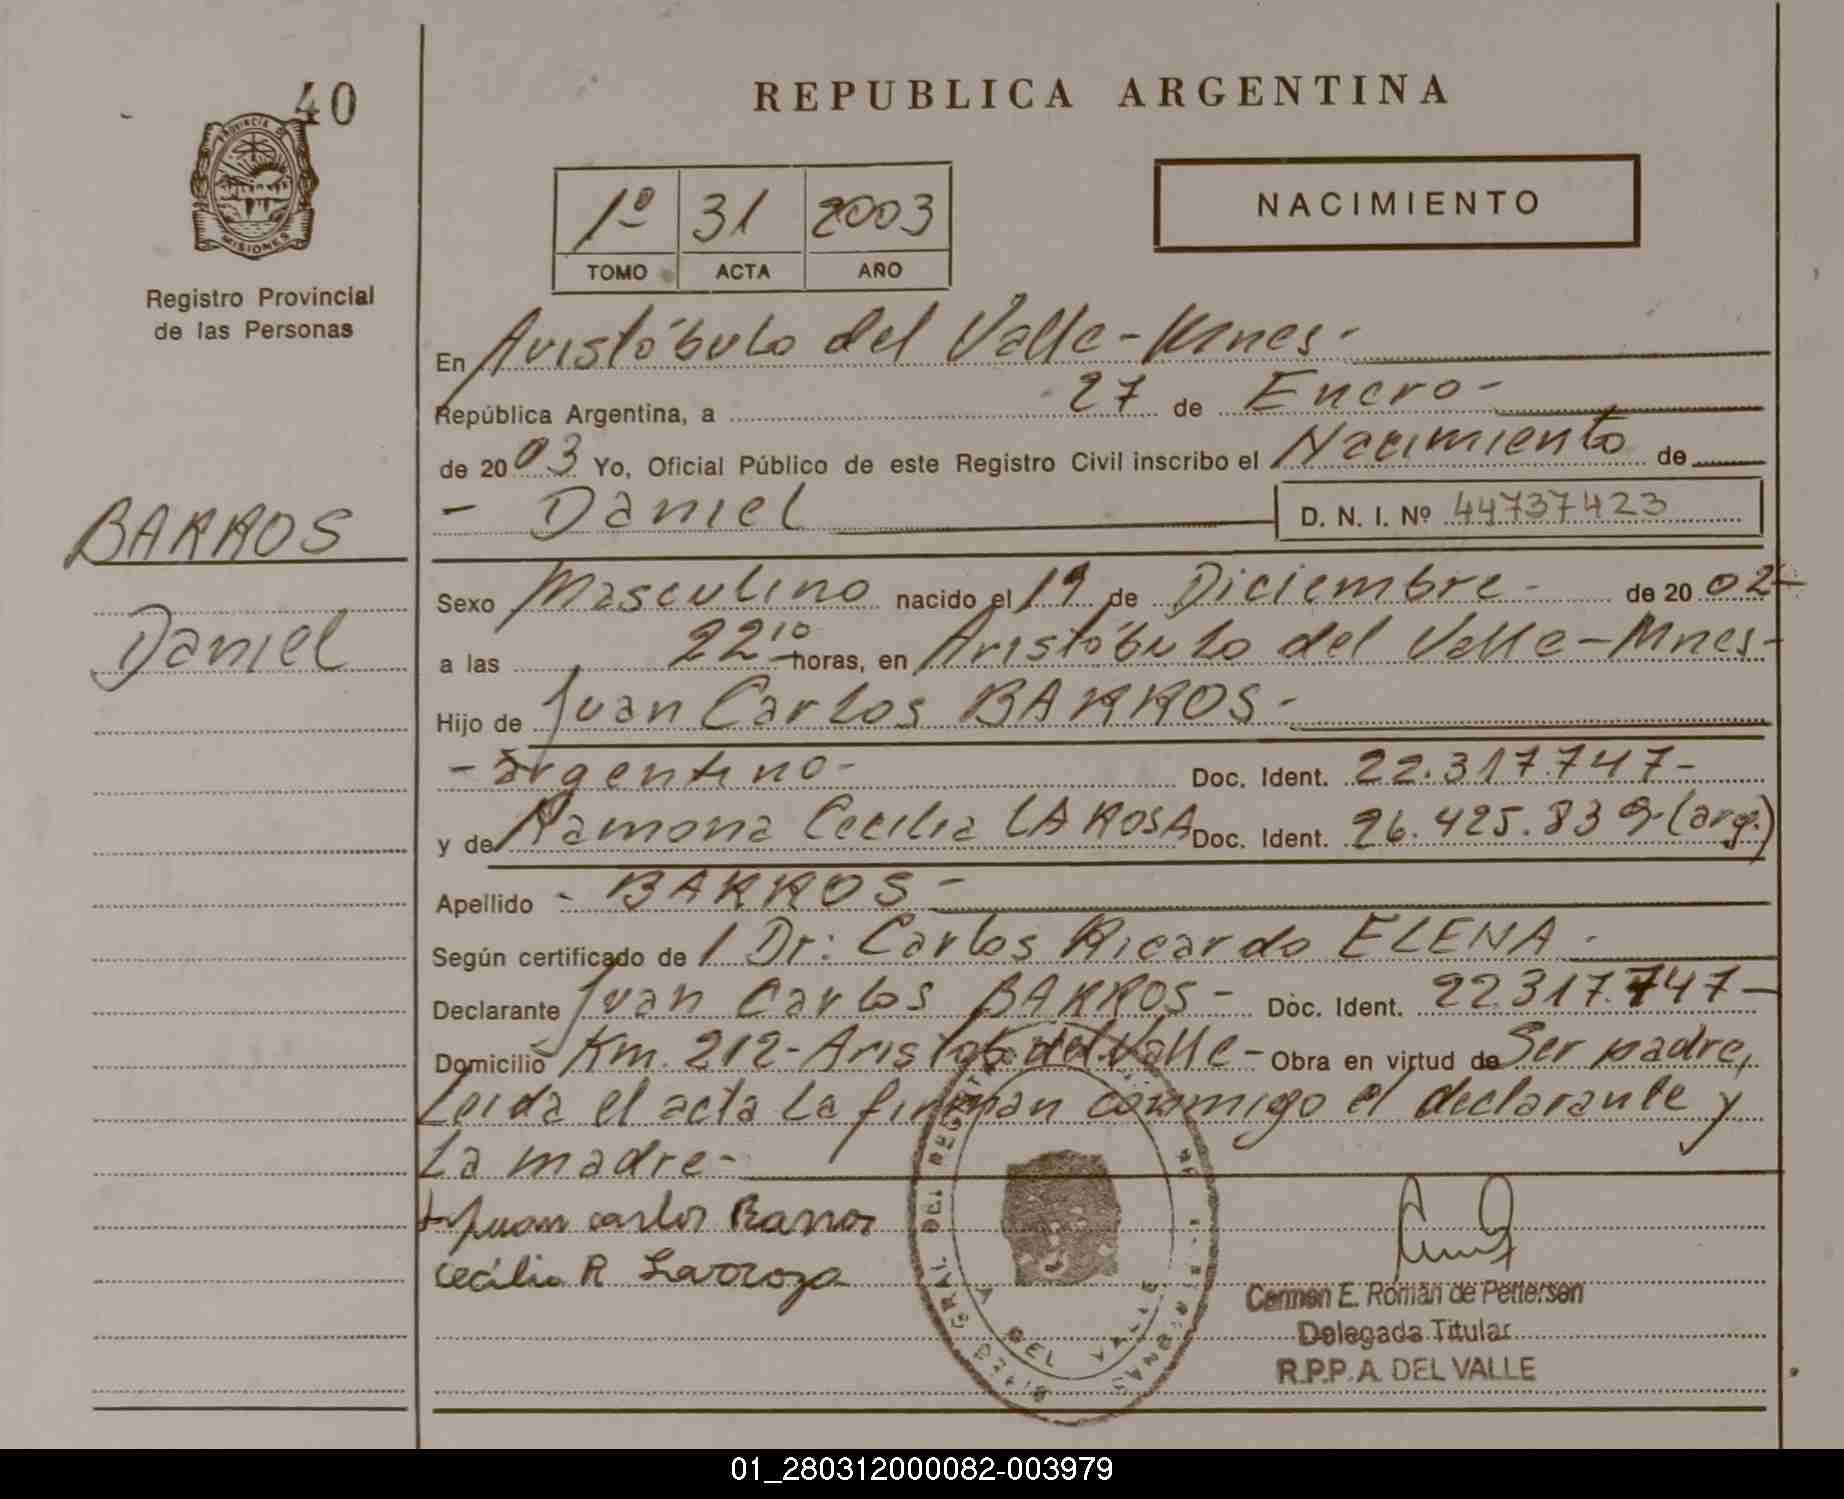 40
PROVINCIA DE
MISIONES
Registro Provincial
de las Personas
BARROS
Daniel
REPUBLICA ARGENTINA
1º 31 2003
TOMO ACTA AÑO
NACIMIENTO
En Aristóbulo del Valle-Mnes-
República Argentina, a 27 de Enero-
de 2003 Yo, Oficial Público de este Registro Civil inscribo el Nacimiento de
- Daniel D. N. I. Nº 44737423
Sexo Masculino nacido el 19 de Diciembre- de 2002-
a las 22 10 horas, en Aristóbulo del Valle-Mnes-
Hijo de Juan Carlos BARROS-
-argentino- Doc. Ident. 22.317.747-
y de Ramona Cecilia LAROSA Doc. Ident. 26.425.839-(arg.)
Apellido - BARROS-
Según certificado de 1 Dr: Carlos Ricardo ELENA-
Declarante Juan Carlos BARROS- Doc. Ident. 22.317.747-
Domicilio Km. 212-Aristób. del Valle- Obra en virtud de Ser padre,
Leida el acta la firman conmigo el declarante y
La madre-
Juan carlos Barros
cecilia R Larroza
DEL VALLE
Carmen E. Román de Pettersen
Delegada Titular
R.P.P.A. DEL VALLE
01_280312000082-003979